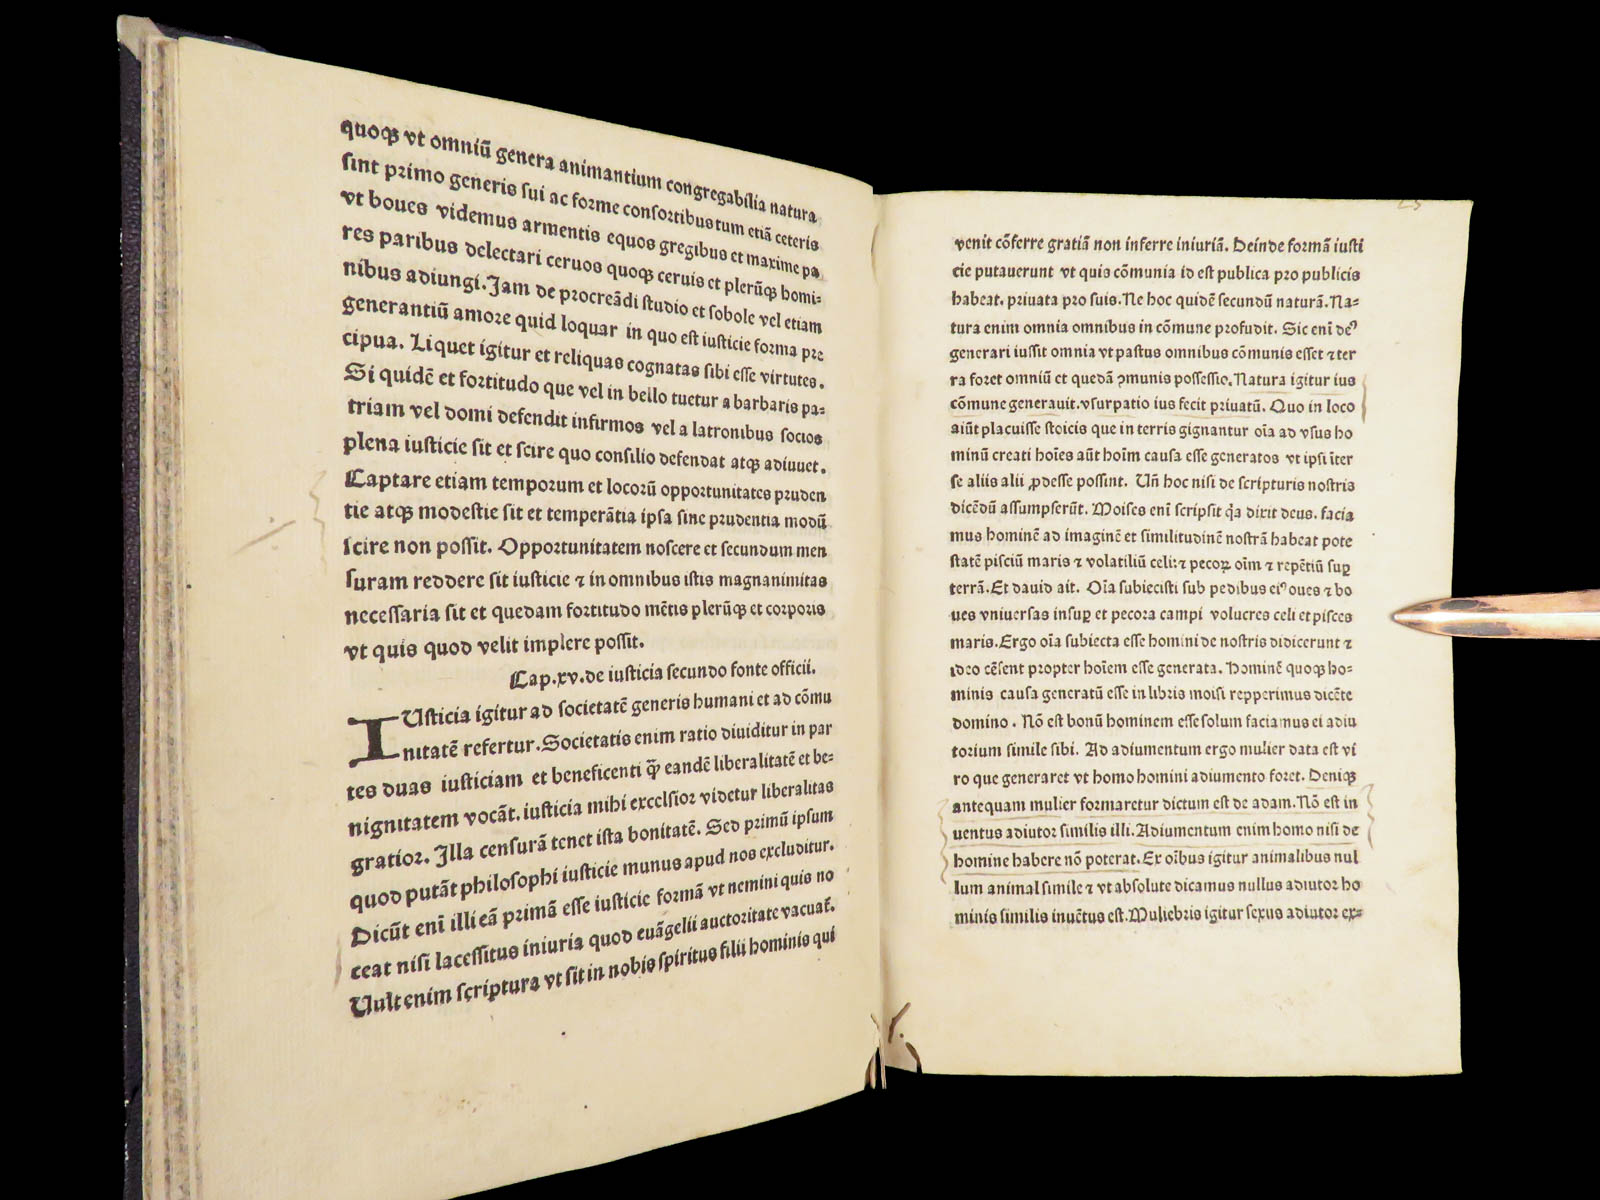 quoqꝫ vt omniū genera animantium congregabilia natura
sint primo generis sui ac forme consortibus tum etiā ceteris
vt boues videmus armentis equos gregibus et maxime pa
res paribus delectari ceruos quoqꝫ ceruis et plerūqꝫ homi-
nibus adiungi. Jam de procreādi studio et sobole vel etiam
generantiū amore quid loquar in quo est iusticie forma pre
cipua. Liquet igitur et reliquas cognatas sibi esse virtutes.
Si quidē et fortitudo que vel in bello tuetur a barbaris pa-
triam vel domi defendit infirmos vel a latronibus socios
plena iusticie sit et scire quo consilio defendat atqꝫ adiuuet.
Captare etiam temporum et locorū opportunitates pruden
tie atqꝫ modestie sit et temperātia ipsa sine prudentia modū
scire non possit. Opportunitatem noscere et secundum men
suram reddere sit iusticie ⁊ in omnibus istis magnanimitas
necessaria sit et quedam fortitudo mētis plerūqꝫ et corporis
vt quis quod velit implere possit.
Cap.xv.de iusticia secundo fonte officii.
IUsticia igitur ad societatē generis humani et ad cōmu
nitatē refertur. Societatis enim ratio diuiditur in par
tes duas iusticiam et beneficenti q̄ꝫ eandē liberalitatē et be-
nignitatem vocāt. iusticia mihi excelsior videtur liberalitas
gratior. Illa censurā tenet ista bonitatē. Sed primū ipsum
quod putāt philosophi iusticie munus apud nos excluditur.
Dicūt enī illi eā primā esse iusticie formā vt nemini quis no
ceat nisi lacessitus iniuria quod euāgelii auctoritate vacuat̄.
Uult enim scriptura vt sit in nobis spiritus filii hominis qui
23
venit cōferre gratiā non inferre iniuriā. Deinde formā iusti
cie putauerunt vt quis cōmunia id est publica pro publicis
habeat. priuata pro suis. Ne hoc quidē secundū naturā. Na-
tura enim omnia omnibus in cōmune profudit. Sic enī deꝰ
generari iussit omnia vt pastus omnibus cōmunis esset ⁊ ter
ra foret omniū et quedā ꝯmunis possessio. Natura igitur ius
cōmune generauit. vsurpatio ius fecit priuatū. Quo in loco
aiūt placuisse stoicis que in terris gignantur oīa ad vsus ho
minū creati hoīes aūt hoīm causa esse generatos vt ipsi īter
se aliis alii ꝓdesse possint. Uñ hoc nisi de scripturis nostris
dicēdū assumpserūt. Moises enī scripsit q̄a dixit deus. facia
mus hominē ad imaginē et similitudinē nostrā habeat pote
statē pisciū maris ⁊ volatiliū celi: ⁊ pecoꝝ oīm ⁊ repētiū suꝑ
terrā. Et dauid ait. Oīa subiecisti sub pedibus eiꝰ oues ⁊ bo
ues vniuersas insuꝑ et pecora campi volucres celi et pisces
maris. Ergo oīa subiecta esse homini de nostris didicerunt ⁊
ideo cēsent propter hoīem esse generata. Hominē quoqꝫ ho-
minis causa generatū esse in libris moisi repperimus dicēte
domino. Nō est bonū hominem esse solum faciamus ei adiu
torium simile sibi. Ad adiumentum ergo mulier data est vi
ro que generaret vt homo homini adiumento foret. Deniqꝫ
antequam mulier formaretur dictum est de adam. Nō est in
uentus adiutor similis illi. Adiumentum enim homo nisi de
homine habere nō poterat. Ex oībus igitur animalibus nul
lum animal simile ⁊ vt absolute dicamus nullus adiutor ho
minis similis inuētus est. Muliebris igitur sexus adiutor ex-